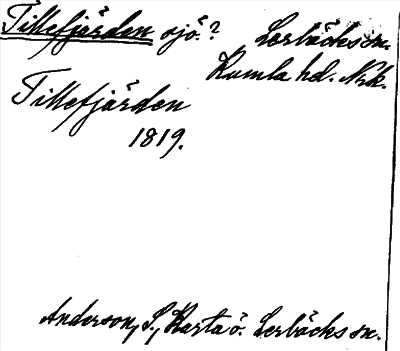 Tillefjärden sjö.? Lerbäcks sn.
Kumla hd. Nrk.
Tillefjärden
1819.
Anderson, S., Karta ö. Lerbäcks sn.